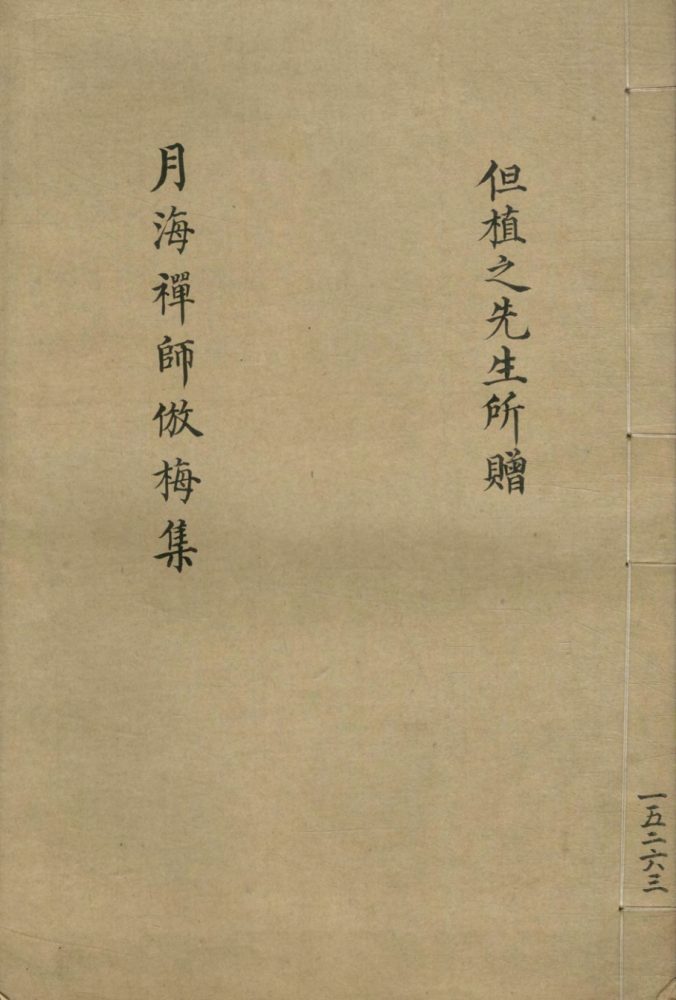 一五二六三
但植之先生所贈
月海禪師倣梅集